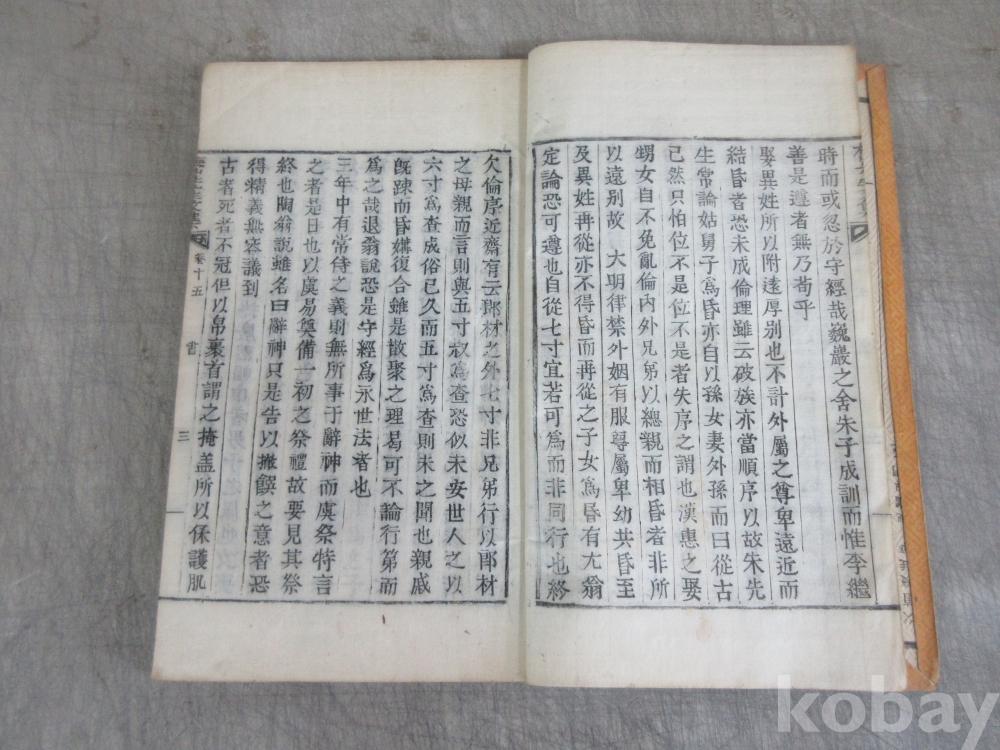 時而或忍於守經哉巍巖之舍朱子成訓而惟李繼
善是遵者無乃苟乎
娶異姓所以附遠厚別也不計外屬之尊卑遠近而
結昏者恐未成倫理雖云破族亦當順序以故朱先
生常論姑舅子爲昏亦自以孫女妻外孫而曰從古
已然只怕位不是位不是者失序之謂也漢惠之娶
甥女自不免亂倫內外兄弟以緦親而相昏者非所
以遠別故 大明律禁外姻有服尊屬卑幼共昏至
及異姓再從亦不得昏而再從之子女爲昏有尤翁
定論恐可遵也自從七寸宜若可爲而非同行也終
欠倫序近齋有云郎材之外七寸非兄弟行以郎材
之母親而言則與五寸叔爲査恐似未安世人之以
六寸爲査成俗已久而五寸爲査則未之聞也親戚
旣踈而昏媾復合雖是散聚之理曷可不論行第而
爲之哉退翁說恐是守經爲永世法者也
三年中有常侍之義則無所事于辭神而虞祭特言
之者是日也以虞易奠備一初之祭禮故要見其祭
終也陶翁說雖名曰辭神只是告以撤饌之意者恐
得精義無容議到
古者死者不冠但以帛裹首謂之掩盖所以保護肌
卷十五
書
三
kobay